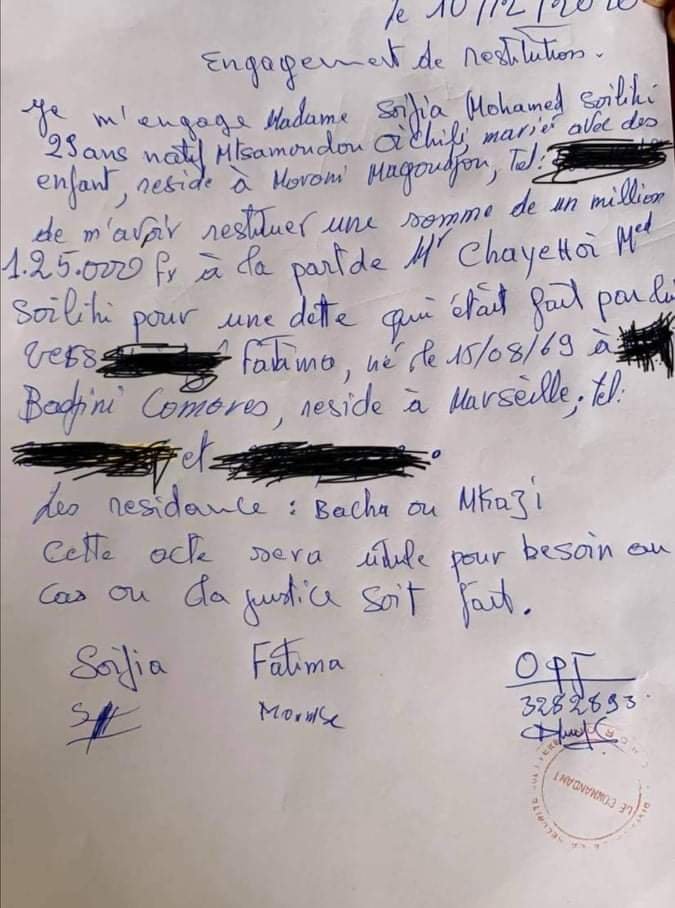 le 10/12/2020
Engagement de restitution.
Je m'engage Madame Soifia Mohamed Soilihi
29ans natif Mtsamoudou Oichili, mariée avec des
enfant, reside à Moroni Magoudjou, Tel:
de m'avoir restituer une somme de un million
1.25.000 fr à la part de Mr Chayehoi Med
Soilihi pour une dette qui était fait par lui
vers Fatima, né le 15/08/69 à
Badjini Comores, reside à Marseille, tel:
et
Les residance : Bacha ou Mkazi
Cette acte sera utule pour besoin ou
cas ou la justice soit fait.
Soifia Fatima OPJ
3282893
LE COMMANDANT